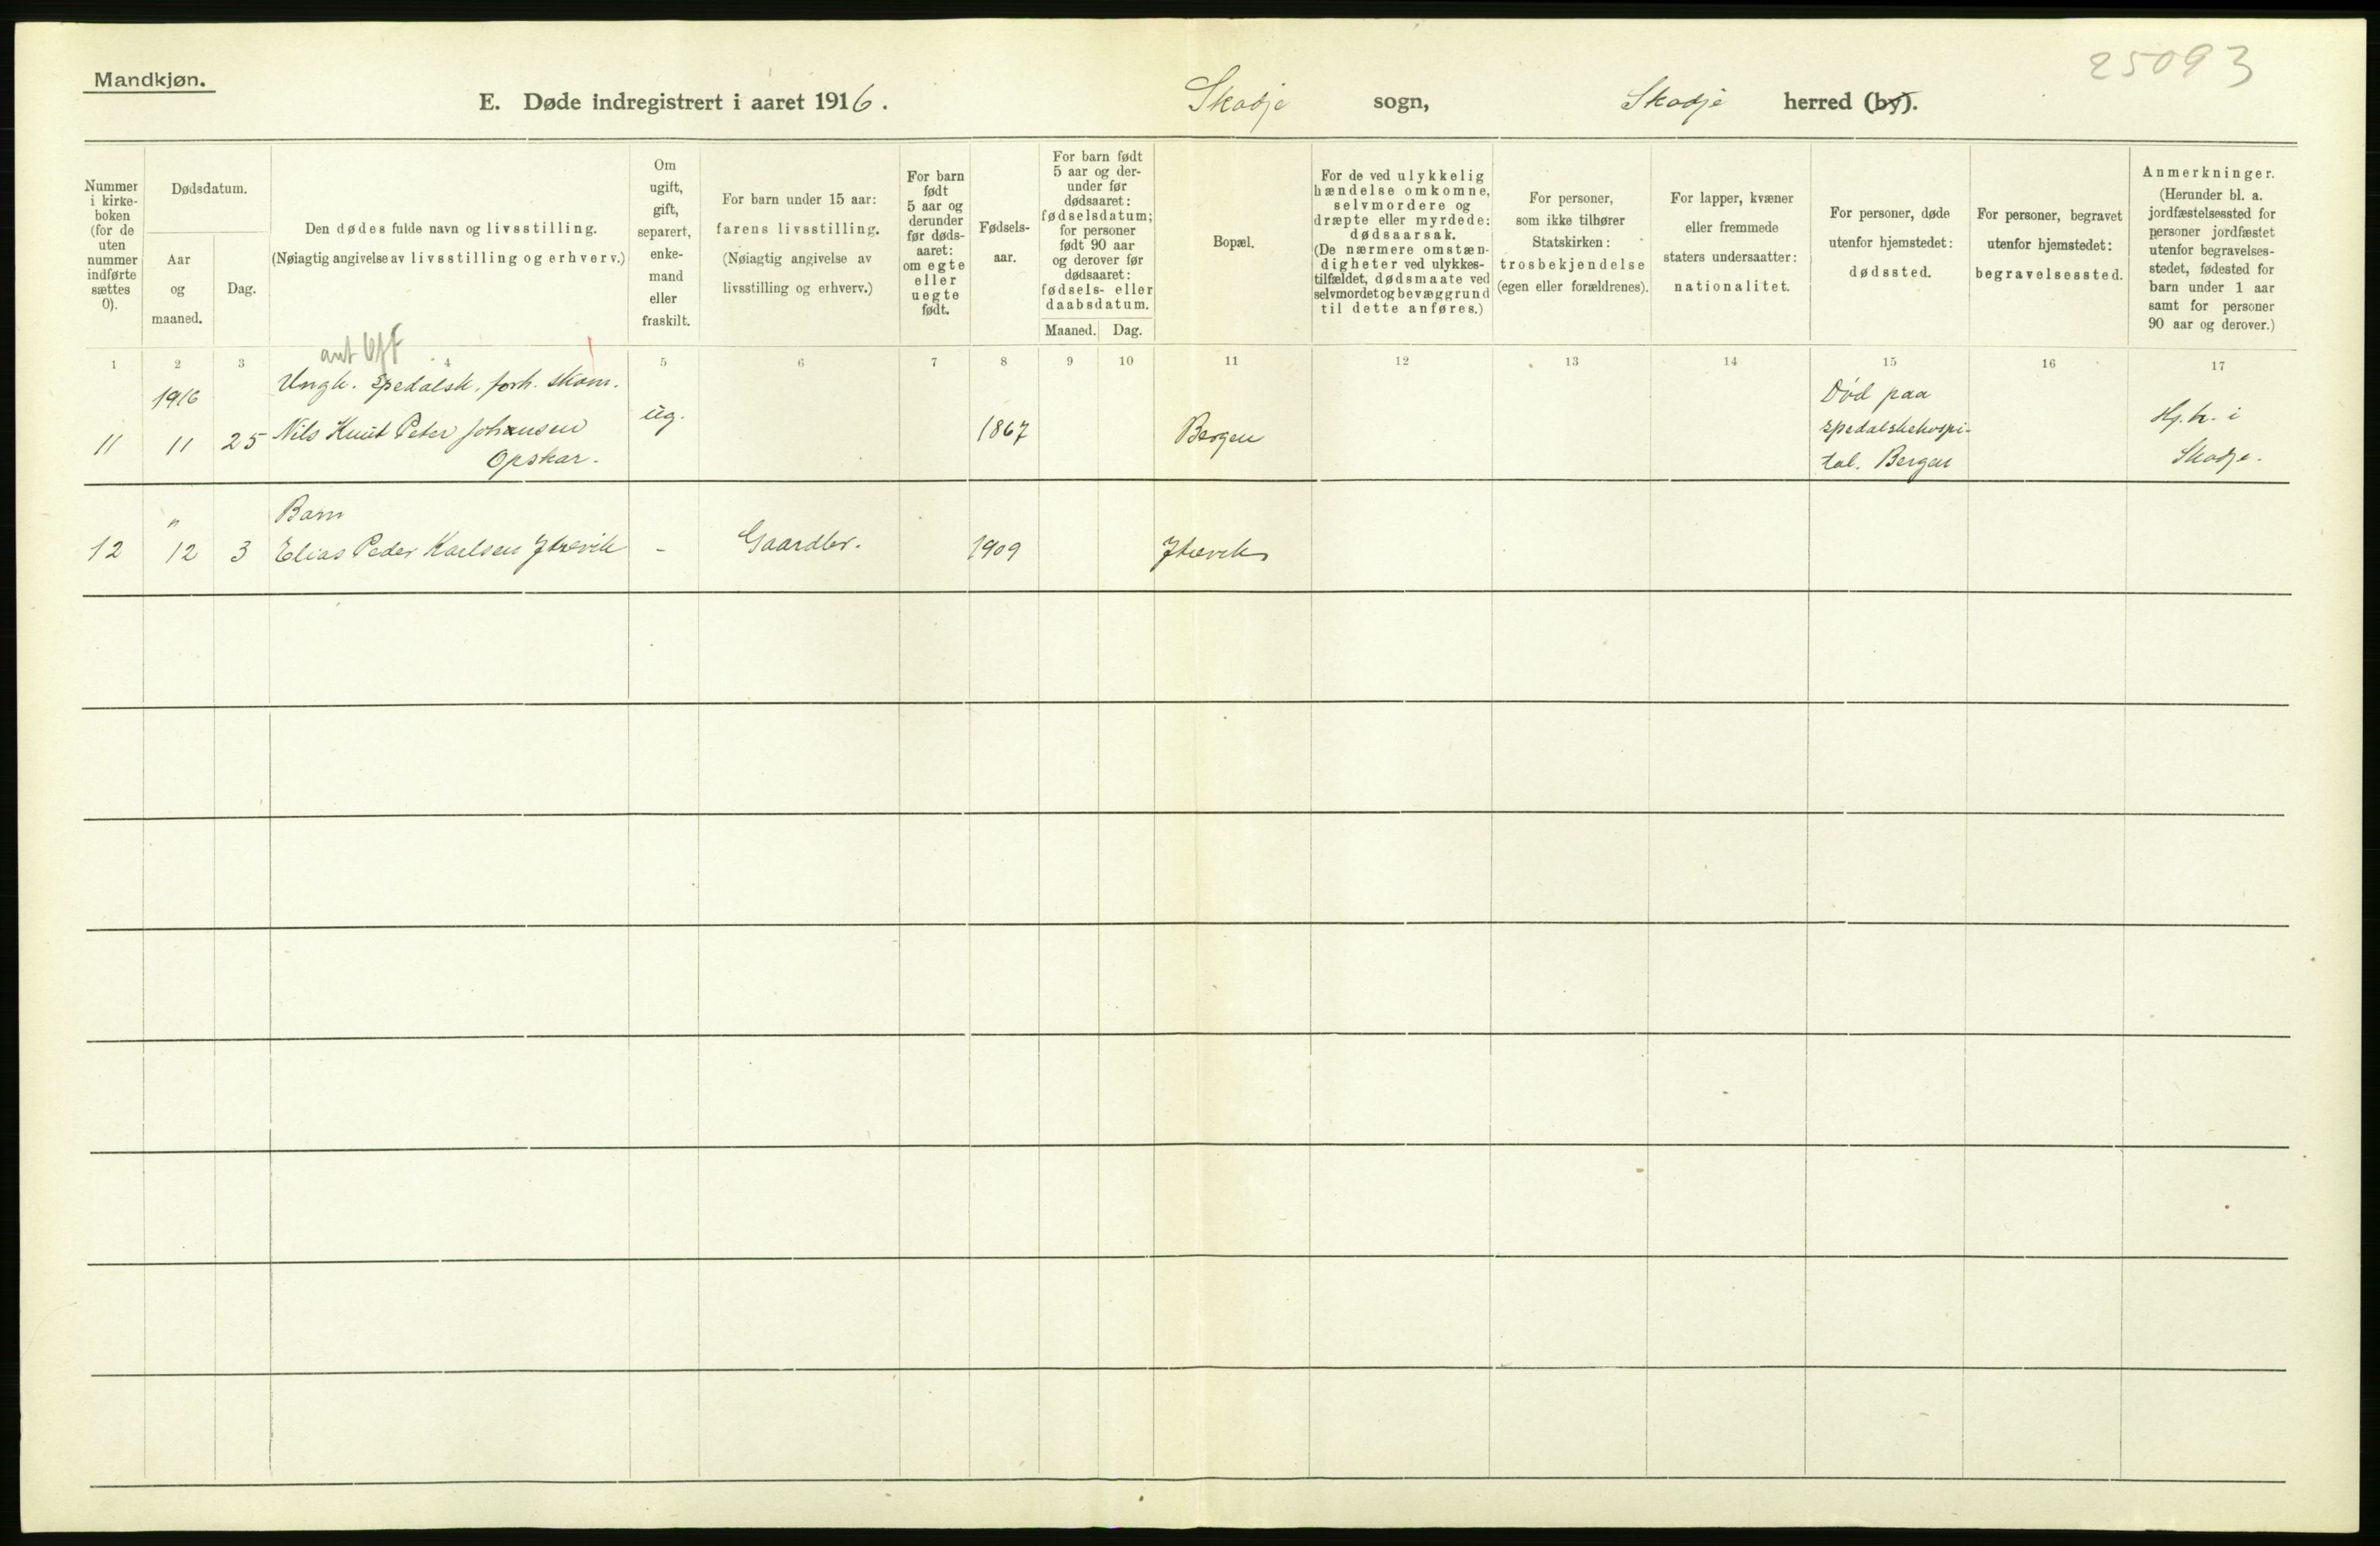 Mandkjøn.
25093
E. Døde indregistrert i aaret 1916. Skodje sogn, Skodje herred (by).
Nummer i kirke- boken (for de uten nummer indførte sættes 0).
Dødsdatum.
Aar og maaned.
Dag.
Den dødes fulde navn og livsstilling.
(Nøiagtig angivelse av livsstilling og erhverv.)
Om ugift, gift, separert, enke- mand eller fraskilt.
For barn under 15 aar:
farens livsstilling.
(Nøiagtig angivelse av
livsstilling og erhverv.)
For barn født 5 aar og derunder før døds- aaret: om egte eller uegte født.
Fødsels- aar.
For barn født 5 aar og der- under før dødsaaret: fødselsdatum; for personer født 90 aar og derover før dødsaaret: fødsels- eller daabsdatum.
Maaned. Dag.
Bopæl.
For de ved ulykkelig hændelse omkomne, selvmordere og dræpte eller myrdede: dødsaarsak. (De nærmere omstæn- digheter ved ulykkes- tilfældet, dødsmaate ved selvmordet og bevæggrund til dette anføres.)
For personer, som ikke tilhører Statskirken: trosbekjendelse (egen eller forældrenes).
For lapper, kvæner eller fremmede staters undersaatter: nationalitet.
For personer, døde utenfor hjemstedet: dødssted.
For personer, begravet utenfor hjemstedet: begravelsessted.
Anmerkninger. (Herunder bl. a. jordfæstelsessted for personer jordfæstet utenfor begravelses- stedet, fødested for barn under 1 aar samt for personer 90 aar og derover.)
1 2 3 4 5 6 7 8 9 10 11 12 13 14 15 16 17
Ungk. spedalsk. forh. skom.
1916
11 11 25 Nils Knut Peter Johansen
Opskar.
ug.
1867
Bergen
Død paa
spedalskehospi-
tal. Bergen
Hj.h. i
Skodje.
"
Barn
12 12 3 Elias Peder Karlsen Itrevik - Gaardbr. 1909 Itrevik